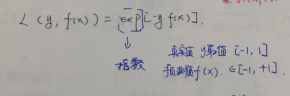 L(y, f(x)) = exp[-y f(x)].
↓
指数
真实值 y取值 [-1, 1]
预测值 f(x). ∈[-1, +1].